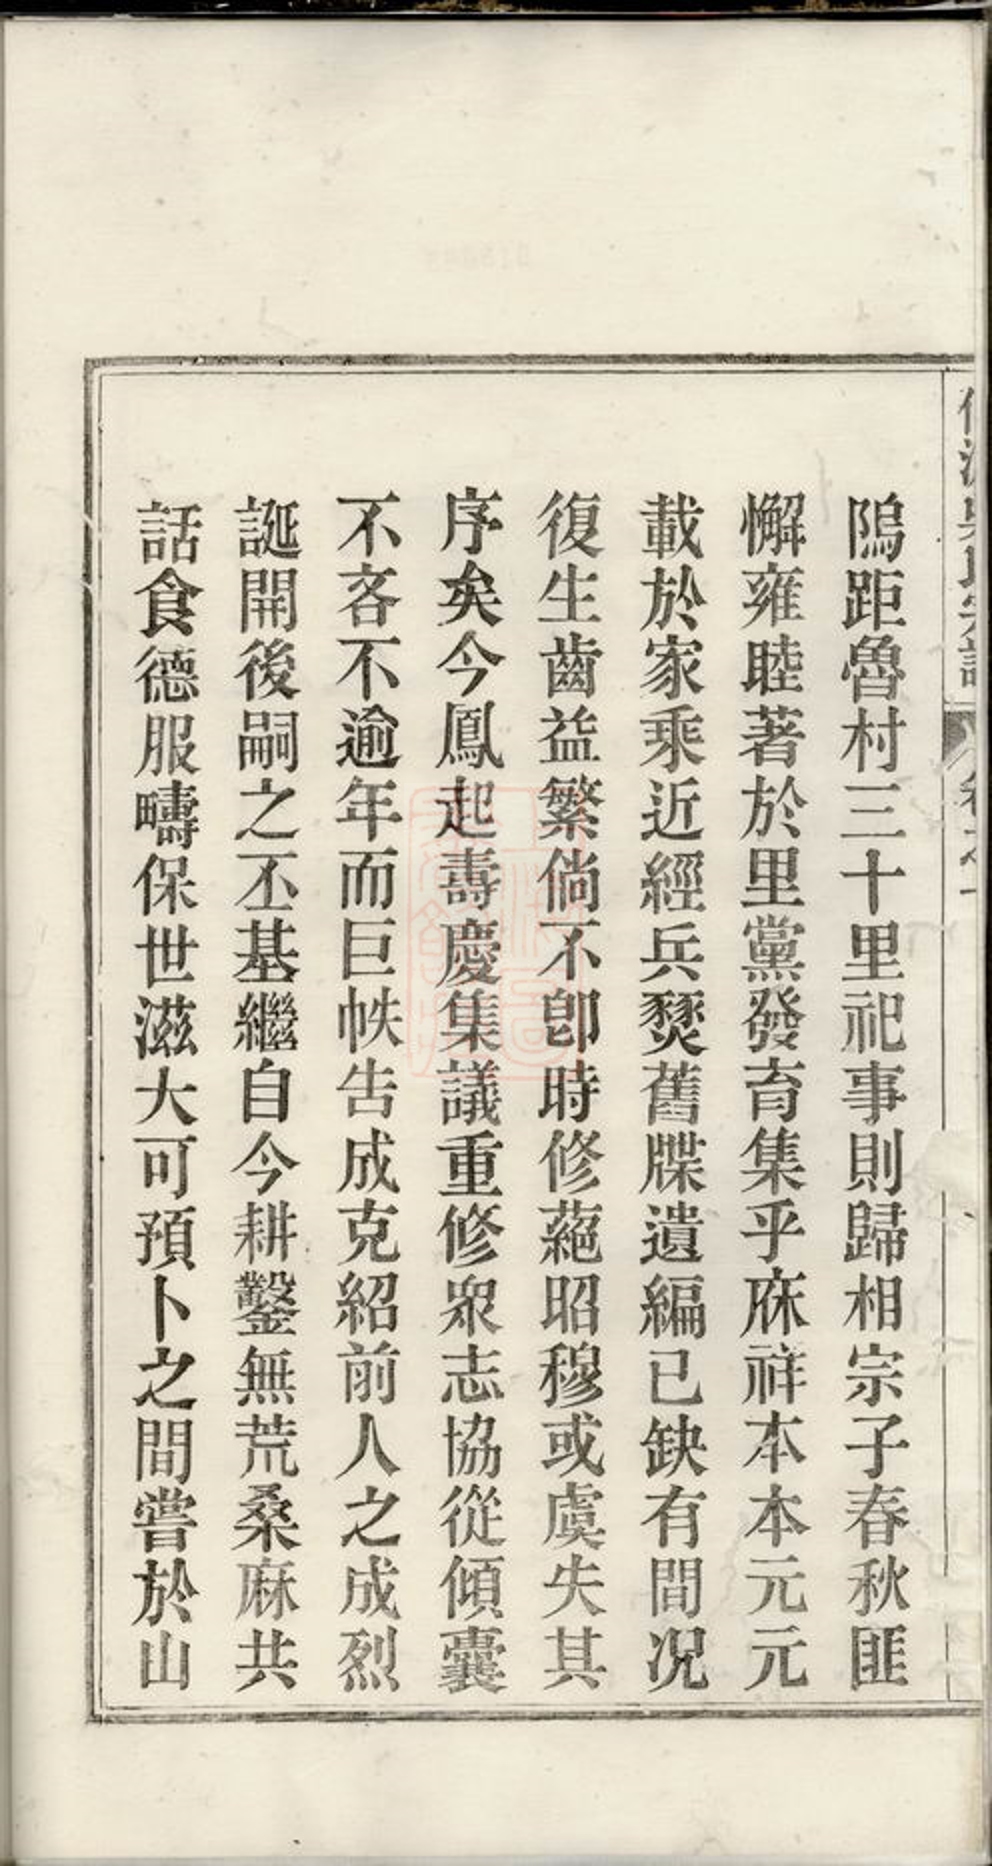 隖距魯村三十里祀事則歸相宗子春秋匪
懈雍睦著於里黨發育集乎庥祥本本元元
載於家乘近經兵燹舊牒遺編已缺有間况
復生齒益繁倘不卽時修葩昭穆或虞失其
序矣今鳳起壽慶集議重修衆志協從傾囊
不吝不逾年而巨帙告成克紹前人之成烈
誕開後嗣之丕基繼自今耕鑿無荒桑麻共
話食德服疇保世滋大可預卜之間嘗於山